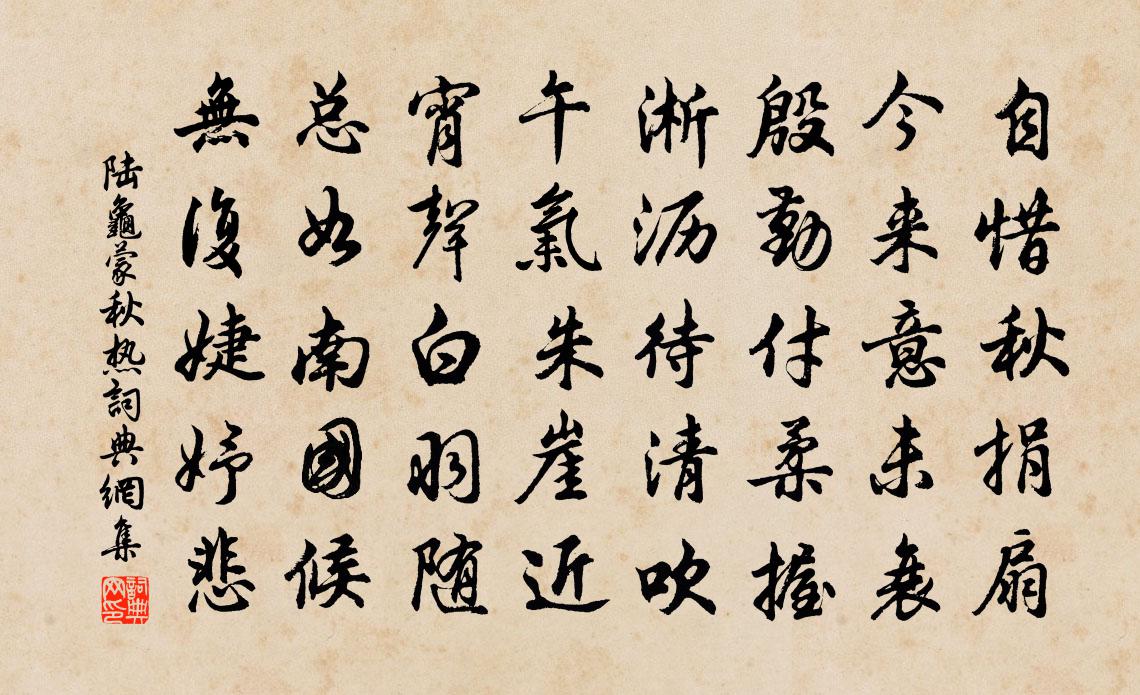 自惜秋捐扇
今来意未衰
殷勤付柔握
淅沥待清吹
午氣朱崖近
宵聲白羽随
总如南國候
無復婕妤悲
陆龜蒙秋热詞典網集
詞典网印